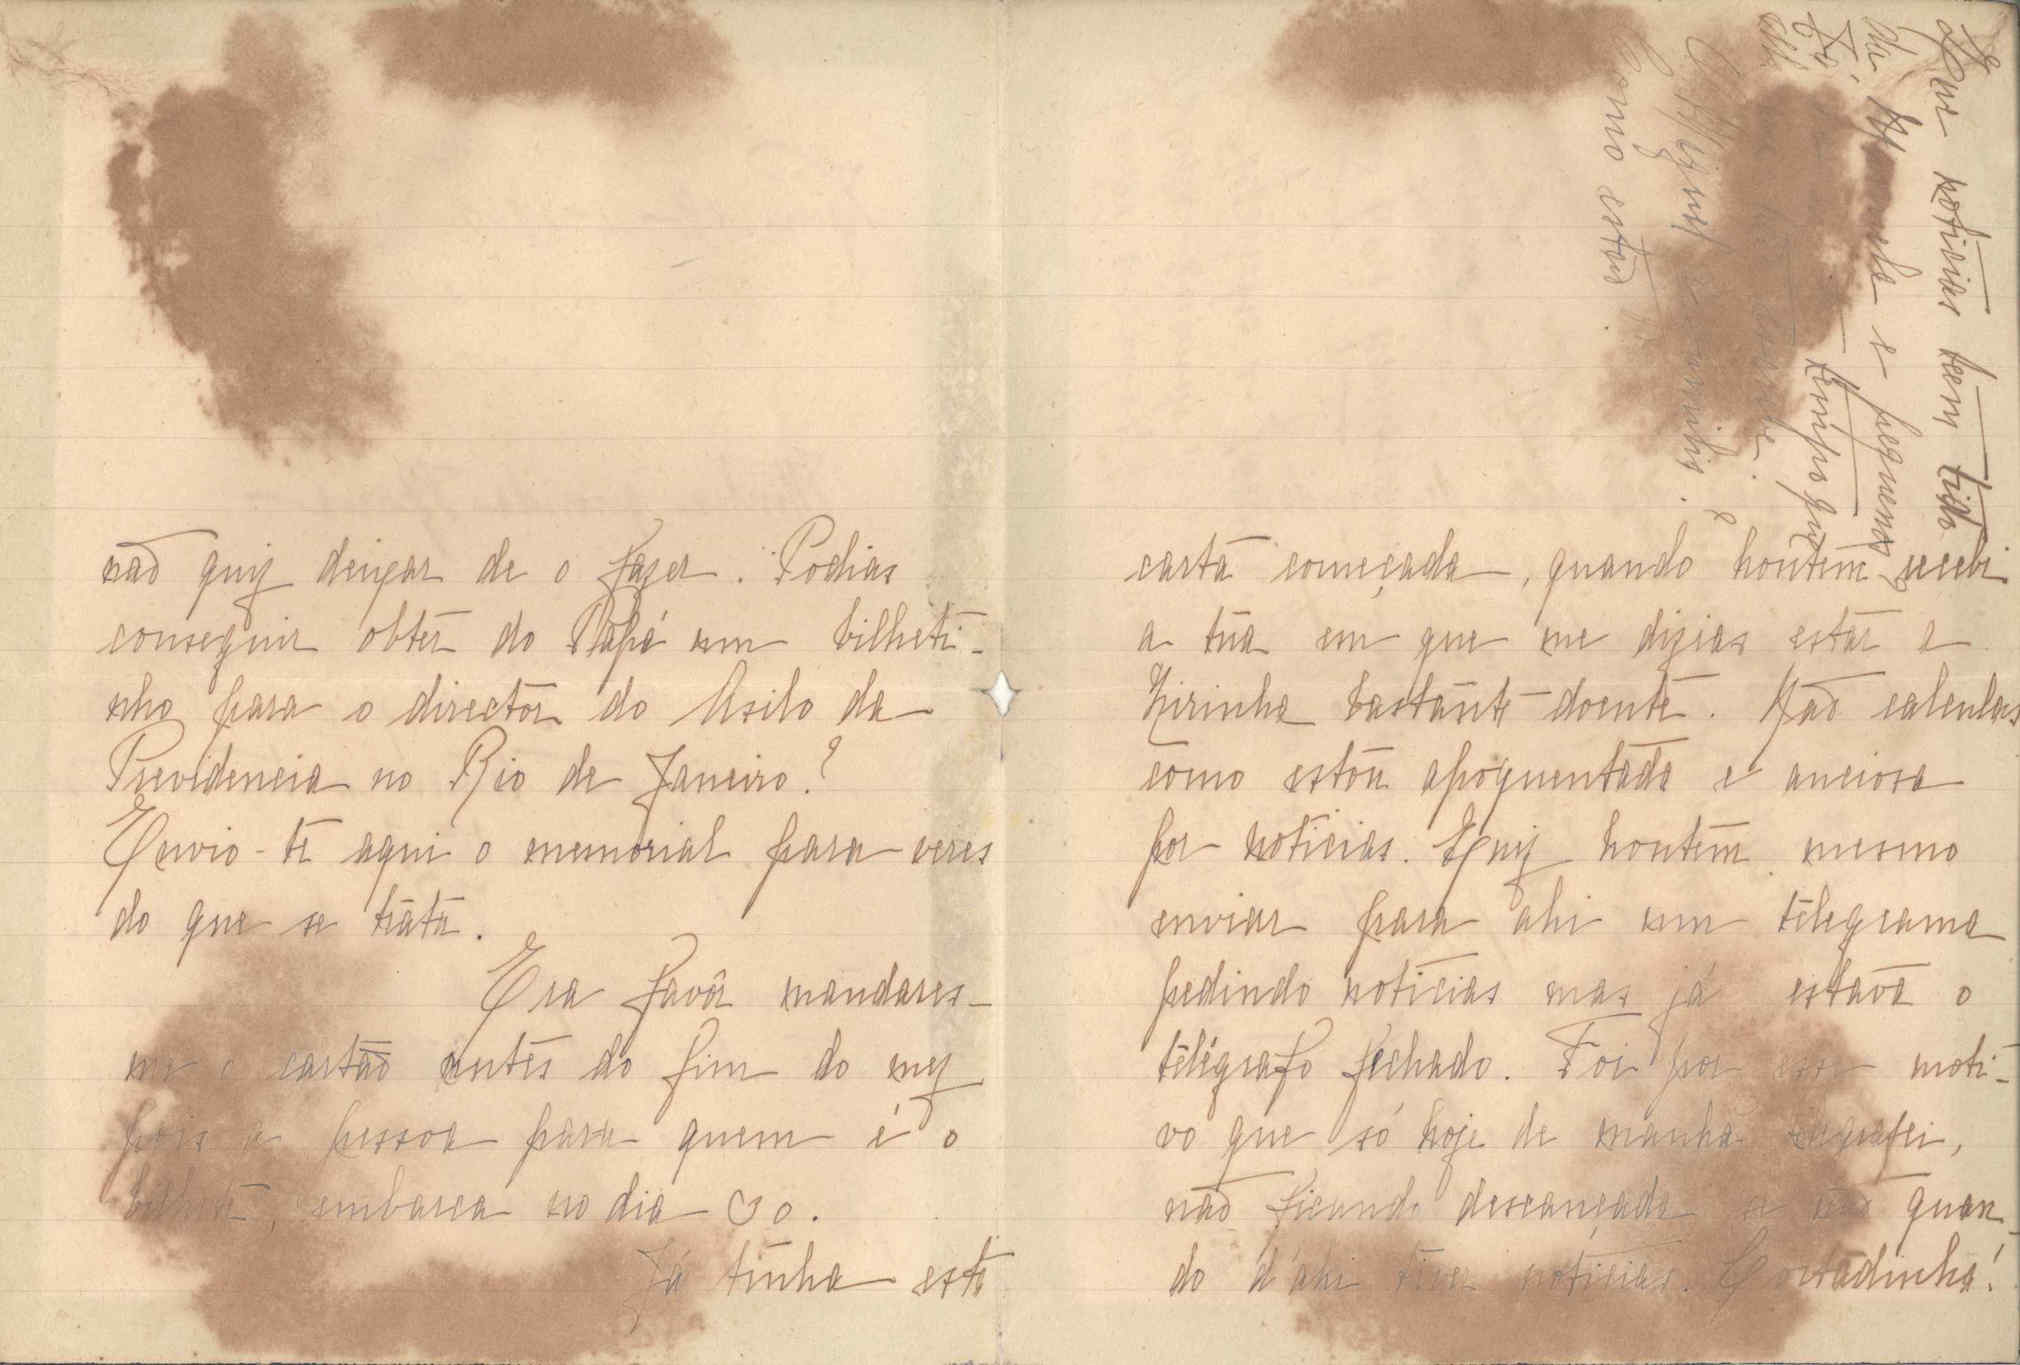 não quiz deixar de o fazer. Podias
conseguir obter do Papá um bilheti-
nho para o director do Asilo da
Previdencia no Rio de Janeiro?
Envio-te aqui o memorial para veres
do que se trata.
Era favôr mandares-
me o cartão antes do fim do mez
pois a pessoa para quem é o
bilhete, embarca no dia
Já tinha esta
carta começada, quando hontem recebi
a tua em que me dizias estar a
Zirinha bastante doente. Não calculas
como estou apoquentada e anciosa
por noticias. Quiz hontem mesmo
enviar para ahi um telegrama
pedindo noticias mas já estava o
telégrafo fechado. Foi por esse moti-
vo que só hoje de manhã telegrafei,
não ficando descançada se não quan-
do d'ahi tiver noticias. Coitadinha!
Que noticias teem tido
e pequenos
tempo que
Como estão